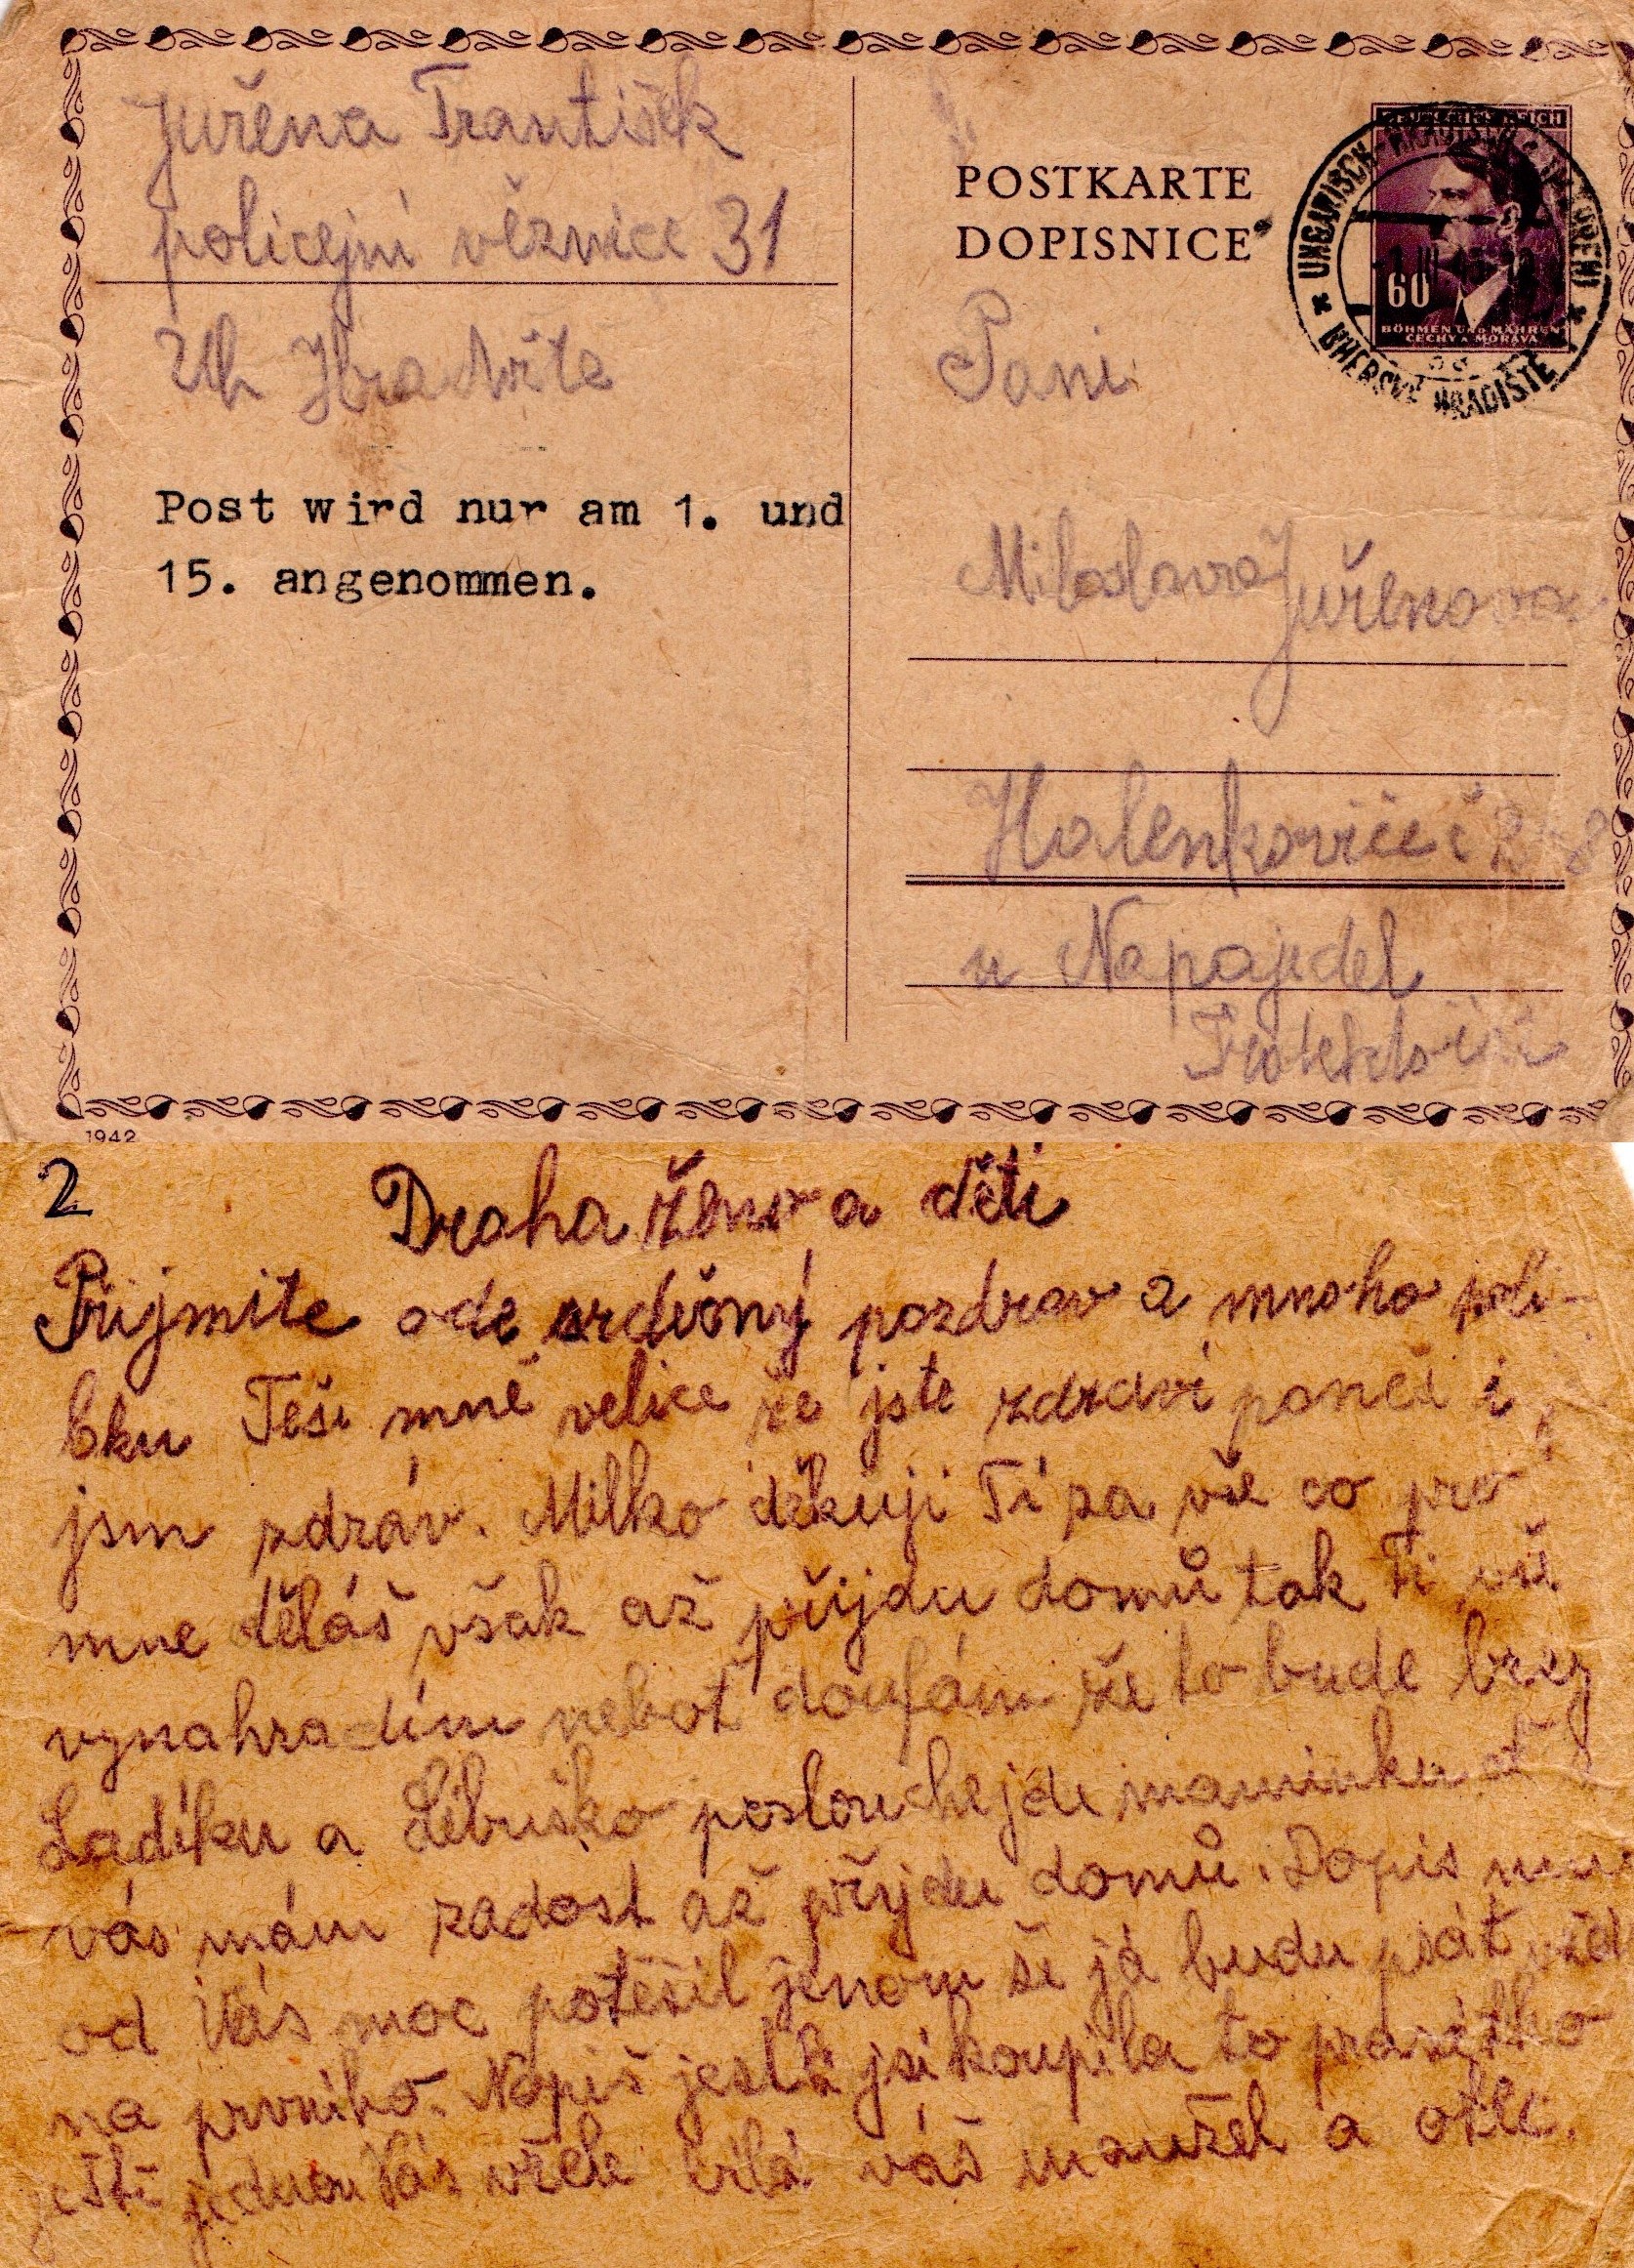 Juřena František
policejní věznice 31
Uh Hradiště
Post wird nur am 1. und
15. angenommen.
POSTKARTE
DOPISNICE
DEUTSCHES REICH
60
BÖHMEN UND MÄHREN
ČECHY A MORAVA
UNGARISCH HRADISCH
UHERSKÉ HRADIŠTĚ
Pani
Miloslava Juřenova
Halenkoviče č
u Napajedel
1942
2
Draha ženo a děti
Přijmite ode srdečný pozdrav a mnoho poli-
bku Teši mně velice že jste zdravi i
jsm zdráv. Milko děkuji Ti za vše co pro
mne děláš však až přijdu domů tak Ti vše
vynahradím nebot doufám že to bude brzy
Ladíku a Libuško poslouchejde maminku ať
vás mám radost až přijdu domů. Dopis
od Vás moc potěšil jenom že já budu psát
na prvniho. Napiš jestli jsi koupila to prasátko
ještě jednou Vás vřele líbá váš manžel a otec.